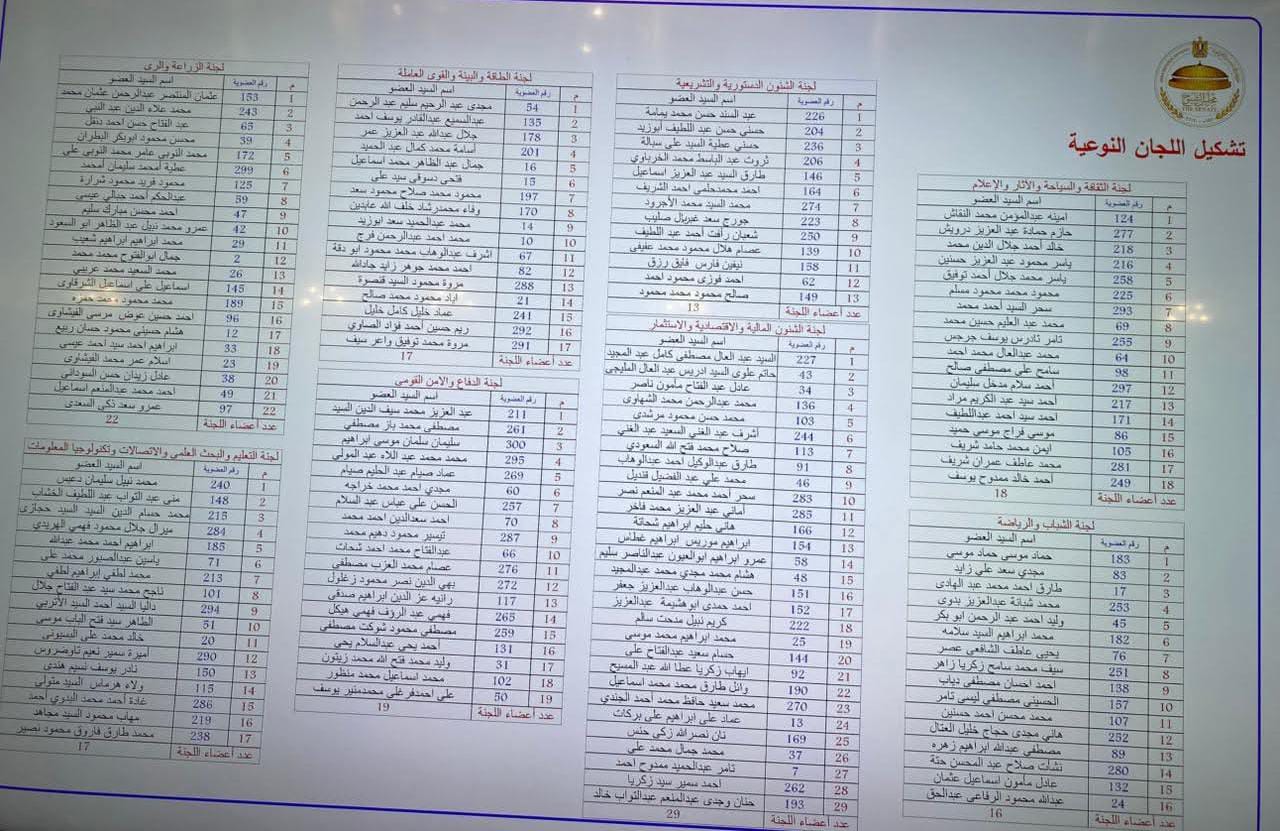 تشكيل اللجان النوعية
لجنة الثقافة والسياحة والآثار والإعلام
م رقم العضوية اسم السيد العضو
1 124 امينه عبدالمؤمن محمد النقاش
2 277 حازم حمادة عبد العزيز درويش
3 218 خالد أحمد جلال الدين محمد
4 216 ياسر محمود عبد العزيز حسنين
5 258 ياسر محمد جلال أحمد توفيق
6 225 محمود محمد محمود مسلم
7 293 سحر السيد أحمد محمد
8 69 محمد عبد العليم حسين محمد
9 255 ثامر تادرس يوسف جرجس
10 64 محمد عبدالعال محمد احمد
11 98 سامح علي مصطفى صالح
12 297 أحمد سلام مدخل سليمان
13 217 أحمد سيد عبد الكريم مراد
14 171 احمد سيد أحمد عبداللطيف
15 86 موسى فراج موسي حميد
16 105 ايمن محمد حامد شريف
17 281 محمد عاطف عمران شريف
18 249 أحمد خالد ممدوح يوسف
عدد أعضاء اللجنة 18
لجنة الشباب والرياضة
م رقم العضوية اسم السيد العضو
1 183 حماد موسى حماد موسى
2 83 مجدي سعد علي زايد
3 17 طارق أحمد محمد عبد الهادى
4 253 محمد شبانة عبدالعزيز بدوى
5 45 وليد احمد عبد الرحمن ابو بكر
6 182 محمد ابراهيم السيد سلامه
7 76 يحيى عاطف الشافعي عصر
8 251 سيف محمد سامح زكريا زاهر
9 138 أحمد احسان مصطفى دياب
10 157 الحسيني مصطفى ليسى ثامر
11 107 احمد محمد محسن أحمد حسنين
12 252 هاني مجدى حجاج خليل العتال
13 89 مصطفى عبدالله ابراهيم زهره
14 280 نشأت صلاح عبد المحسن حتة
15 132 عادل مأمون اسماعيل عثمان
16 24 عبدالله محمود الرفاعى عبدالحق
عدد أعضاء اللجنة 16
لجنة الشئون الدستورية والتشريعية
م رقم العضوية اسم السيد العضو
1 226 عبد السند حسن محمد يمامة
2 204 حسني حسن عبد اللطيف أبوزيد
3 236 حسني عطية السيد على سبالة
4 206 ثروت عبد الباسط محمد الخرباوي
5 146 طارق السيد عبد العزيز اسماعيل
6 164 احمد محمدحلمى احمد الشريف
7 274 محمد السيد محمد الأجرود
8 223 جورج سعد غبريال صليب
9 250 شعبان رأفت أحمد عبد اللطيف
10 139 عصام هلال محمود محمد عفيفى
11 158 نيفين فارس فايق رزق
12 62 احمد فوزى محمود احمد
13 149 صالح محمود محمد محمود
عدد أعضاء اللجنة 13
لجنة الشئون المالية والاقتصادية والاستثمار
م رقم العضوية اسم السيد العضو
1 227 السيد عبد العال مصطفى كامل عبد المجيد
2 43 حاتم علوى السيد ادريس عبد العال المليجى
3 34 عادل عبد الفتاح مأمون ناصر
4 136 محمد عبدالرحمن محمد الشهاوى
5 103 محمد حسن محمود مرشدى
6 244 أشرف عبد الغني السعيد عبد الغني
7 113 صلاح محمد فتح الله السعودي
8 91 طارق عبدالوكيل احمد عبدالوهاب
9 46 محمد علي عبد الفضيل قنديل
10 283 سحر أحمد محمد عبد المنعم نصر
11 285 أماني عبد العزيز محمد فاخر
12 166 هاني حليم ابراهيم شحاتة
13 154 ابراهيم موريس ابراهيم غطاس
14 58 عمرو ابراهيم ابوالعيون عبدالناصر سليم
15 48 هشام محمد مجدي محمد عبدالمجيد
16 151 حسن عبدالوهاب عبدالعزيز جعفر
17 152 احمد حمدى ابوهشيمة عبدالعزيز
18 222 كريم نبيل مدحت سالم
19 25 محمد ابراهيم محمد موسى
20 144 حسام سعيد عبدالفتاح على
21 92 ايهاب زكريا عطا الله عبد المسيح
22 190 وائل طارق محمد محمد اسماعيل
23 270 محمد سعيد حافظ محمد أحمد الجندي
24 13 عماد على ابراهيم على بركات
25 169 نان نصرالله زكى حنس
26 37 محمد جمال محمد علي
27 7 ثامر عبدالحميد ممدوح احمد
28 262 احمد سمير سيد زكريا
29 193 حنان وجدى عبدالمنعم عبدالتواب خالد
عدد أعضاء اللجنة 29
لجنة الطاقة والبيئة والقوى العاملة
م رقم العضوية اسم السيد العضو
1 54 مجدى عبد الرحيم سليم عبد الرحمن
2 135 عبدالسميع عبدالقادر يوسف أحمد
3 178 جلال عبدالله عبد العزيز عمر
4 201 أسامة محمد كمال عبد الحميد
5 16 جمال عبد الظاهر محمد اسماعيل
6 15 فتحى دسوقى سيد على
7 197 محمود محمد صلاح محمود سعد
8 170 وفاء محمدرشاد خلف الله عابدين
9 14 محمد عبدالحميد سعد ابوزيد
10 10 محمد احمد عبدالرحمن فرج
11 67 اشرف عبدالوهاب محمد محمود ابو دقة
12 82 احمد محمد جوهر زايد جادالله
13 288 مروة محمود السيد قنصوة
14 21 اياد محمود محمد صالح
15 241 عماد خليل كامل خليل
16 292 ريم حسين أحمد فؤاد الصاوي
17 291 مروة محمد توفيق واعر سيف
عدد أعضاء اللجنة 17
لجنة الدفاع والامن القومى
م رقم العضوية اسم السيد العضو
1 211 عبد العزيز محمد سيف الدين السيد
2 261 مصطفى محمد باز مصطفى
3 300 سليمان سلمان موسى ابراهيم
4 295 محمد محمد عبد اللاه عبد المولي
5 269 عماد صيام عبد الحليم صيام
6 60 مجدي احمد محمد خراجه
7 257 الحسن على عباس عبد السلام
8 70 احمد سعدالدين احمد محمد
9 287 تيسير محمود دهيم محمد
10 66 عبدالفتاح محمد احمد شحات
11 276 عصام محمد العزب مصطفى
12 272 بهي الدين نصر محمود زغلول
13 117 رانيه عز الدين ابراهيم صدقى
14 265 فهمي عبد الرؤف فهمي هيكل
15 259 مصطفى محمود شوكت مصطفى
16 131 أحمد يحي عبدالسلام يحي
17 31 وليد محمد فتح الله محمد زيتون
18 102 محمد اسماعيل محمد منظور
19 50 علي احمدفرغلي محمدمنير يوسف
عدد أعضاء اللجنة 19
لجنة الزراعة والرى
م رقم العضوية اسم السيد العضو
1 153 عثمان المنتصر عبدالرحمن عثمان محمد
2 243 محمد علاء الدين عبد النبي
3 65 عبد الفتاح حسن احمد دنقل
4 39 محسن محمود ابوبكر البطران
5 172 محمد النوبى عامر محمد النوبى على
6 299 عطية محمد سليمان أمحمد
7 125 محمود فريد محمود شرارة
8 59 عبدالحكم أحمد حبالي عيسى
9 47 احمد محسن مبارك سليم
10 42 عمرو محمد نبيل عبد الظاهر ابو السعود
11 29 محمد ابراهيم ابراهيم شعيب
12 2 جمال ابوالفتوح محمد محمد
13 26 محمد السعيد محمد عريبي
14 145 اسماعيل على اسماعيل الشرقاوى
15 189 محمد محمود محمد حمزه
16 96 احمد حسين عوض مرسى الفيشاوى
17 12 هشام حسيني محمود حسان ربيع
18 33 ابراهيم احمد سيد أحمد عيسى
19 23 اسلام عمر محمد الفيشاوى
20 38 عادل زيدان حسن السوداني
21 49 أحمد محمد عبدالمنعم اسماعيل
22 97 عمرو سعد ذكى السعدى
عدد أعضاء اللجنة 22
لجنة التعليم والبحث العلمى والاتصالات وتكنولوجيا المعلومات
م رقم العضوية اسم السيد العضو
1 240 محمد نبيل سليمان دعبس
2 148 منى عبد التواب عبد اللطيف الخشاب
3 215 محمد حسام الدين السيد السيد حجازى
4 284 ميرال جلال محمود فهمي الهريدي
5 185 ابراهيم احمد احمد عبدالله
6 71 ياسين عبدالصبور محمد على
7 213 محمد لطفي ابراهيم لطفي
8 101 ناجح محمد سيد عبد الفتاح جلال
9 294 داليا السيد أحمد السيد الأتربي
10 51 الطاهر سيد فتح الباب موسى
11 20 خالد محمد على البسيونى
12 290 أميرة سمير نعيم تاوضروس
13 150 نادر يوسف نسيم هندى
14 115 ولاء هرماس السيد متولى
15 286 غادة أحمد محمد البدوي أحمد
16 219 مهاب محمود السيد مجاهد
17 238 محمد طارق فاروق محمود نصير
عدد أعضاء اللجنة 17